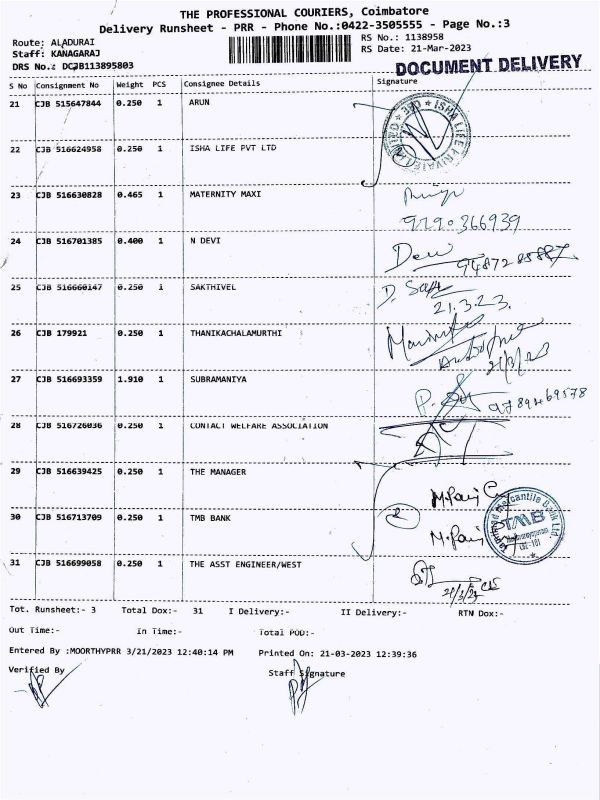 THE PROFESSIONAL COURIERS, Coimbatore
Delivery Runsheet - PRR - Phone No.:0422-3505555 - Page No.:3
Route: ALADURAI
RS No.: 1138958
Staff: KANAGARAJ
RS Date: 21-Mar-2023
DRS No.: DCJB113895803
DOCUMENT DELIVERY
S No Consignment No Weight PCS Consignee Details Signature
21 CJB 515647844 0.250 1 ARUN
ISHA LIFE PRIVATE LIMITED
22 CJB 516624958 0.250 1 ISHA LIFE PVT LTD
23 CJB 516630828 0.465 1 MATERNITY MAXI
24 CJB 516701385 0.400 1 N DEVI
Devi
25 CJB 516660147 0.250 1 SAKTHIVEL
21.3.23.
26 CJB 179921 0.250 1 THANIKACHALAMURTHI
21/3/23
27 CJB 516693359 1.910 1 SUBRAMANIYA
28 CJB 516726036 0.250 1 CONTACT WELFARE ASSOCIATION
29 CJB 516639425 0.250 1 THE MANAGER
30 CJB 516713709 0.250 1 TMB BANK
2
TMB
31 CJB 516699058 0.250 1 THE ASST ENGINEER/WEST
Tot. Runsheet:- 3 Total Dox:- 31 I Delivery:- II Delivery:- RTN Dox:-
Out Time:- In Time:- Total POD:-
Entered By :MOORTHYPRR 3/21/2023 12:40:14 PM Printed On: 21-03-2023 12:39:36
Verified By Staff Signature